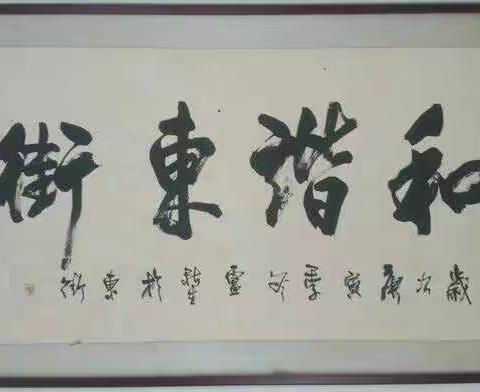 和諧東街
歲次庚寅季冬靈於東街